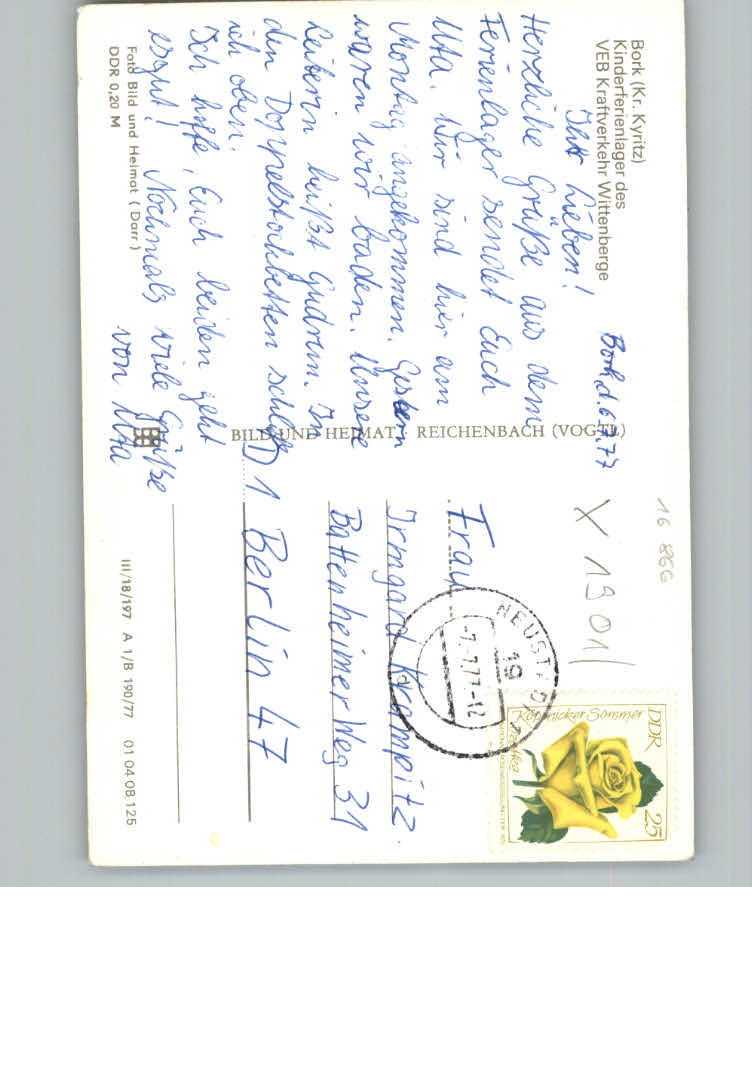 Bork (Kr. Kyritz)
Kinderferienlager des
VEB Kraftverkehr Wittenberge
Bork, d. 6.7.77
Ihr Lieben!
Herzliche Grüße aus dem
Ferienlager sendet Euch
Uta. Wir sind hier am
Montag angekommen. Gestern
waren wir baden. Unsere
Leiterin heißt Gudrun. In
den Doppelstockbetten schlafe
ich oben.
Ich hoffe, Euch beiden geht
es gut! Nochmals viele Grüße
von Uta
Foto Bild und Heimat (Darr)
DDR 0,20 M
BILD UND HEIMAT · REICHENBACH (VOGTL)
III/18/197 A 1/B 190/77 01 04 08 125
16 866
X 1901
Frau
Irmgard Krampitz
Battenheimer Weg 31
D 1 Berlin 47
NEUSTADT
19
-7.7.77-12
DDR
Köpenicker Sommer
25